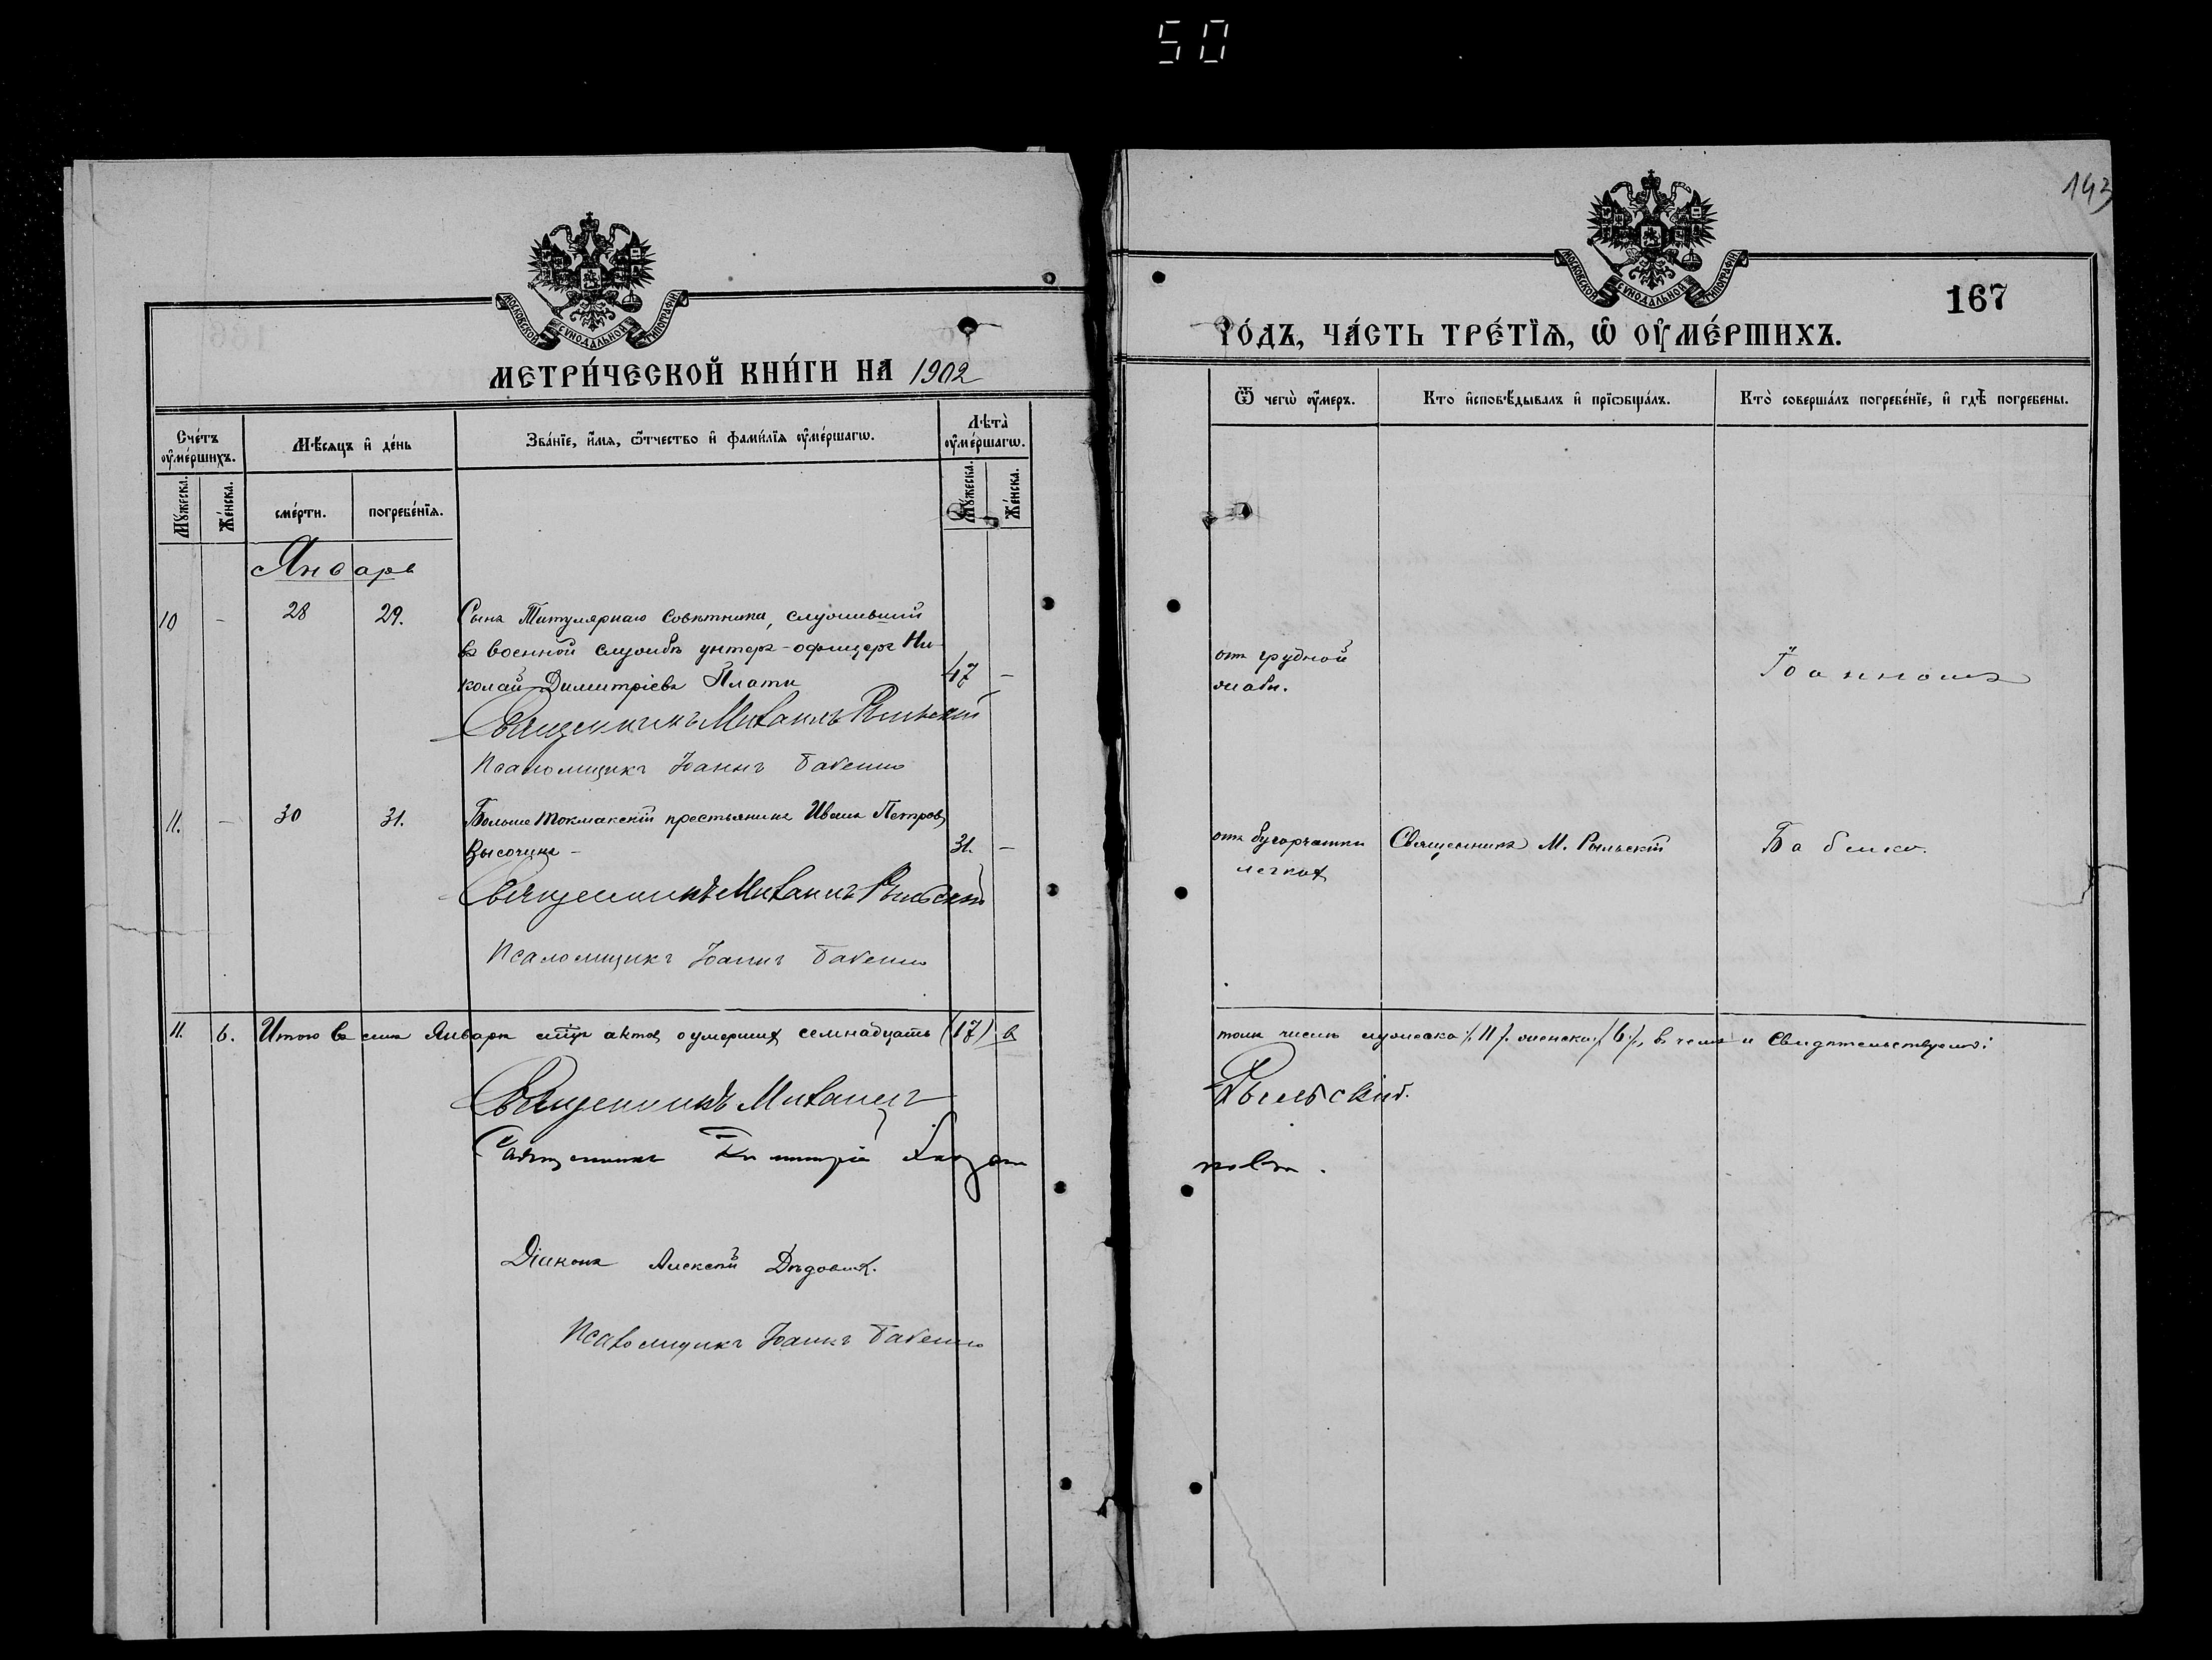 50
143
МОСКОВСКОЙ СУНОДАЛЬНОЙ ТИПОГРАФІИ
МЕТРИ́ЧЕСКОЙ КНИ́ГИ НА 1902
Сче́тъ ᲂу҆ме́ршихъ.
Мѣ́сяцъ и҆ де́нь
Зва́нїе, и҆́мѧ, ѻ҆́тчество и҆ фами́лїѧ ᲂу҆ме́ршагѡ.
Лѣта̀ ᲂу҆ме́ршагѡ.
Мꙋ́жеска.
Же́нска.
сме́рти.
погребе́нїѧ.
Мꙋ́жеска.
Же́нска.
Январь
10 - 28 29. Сынъ Титулярнаго Совѣтника, служившій
въ военной службѣ унтеръ-офицеръ Ни-
колай Димитріевъ Плати 47 -
Священникъ Михаилъ Рыльскій
Псаломщикъ Іоаннъ Бабенко
11. - 30 31. Больше Токмакскій крестьянинъ Иванъ Петровъ
Высочинъ - 31. -
Священникъ Михаилъ Рыльскій
Псаломщикъ Іоаннъ Бабенко
11. 6. Итого въ семъ Январѣ мѣсяцѣ актовъ о умершихъ семнадцать (17) въ
Священникъ Михаилъ
Священникъ Димитрій
Діаконъ Алексѣй Дѣдовичъ.
Псаломщикъ Іоаннъ Бабенко
МОСКОВСКОЙ СУНОДАЛЬНОЙ ТИПОГРАФІИ
167
ГО́ДЪ, ЧА́СТЬ ТРЕ́ТЇѦ, Ѡ҆ ОУ҆МЕ́РШИХЪ.
Ѿ чегѡ̀ ᲂу҆́меръ.
Кто̀ и҆сповѣ́дывалъ и҆ прїѡбща́лъ.
Кто̀ соверша́лъ погребе́нїе, и҆ гдѣ̀ погребены.
отъ грудной
жабы.
Іоанномъ
отъ бугорчатки Священникъ М. Рыльскій Бабенко.
легкихъ
томъ числѣ мужеска /11/. женска /6/, въ чемъ и Свидѣтельствуемъ:
Рыльскій.